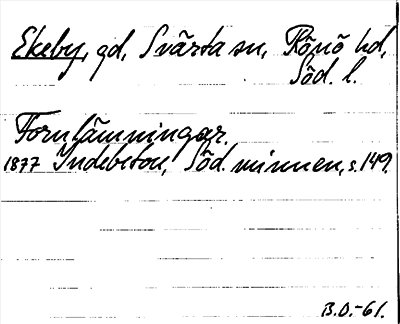 Ekeby, gd, Svärta sn, Rönö hd,
Söd. l.
Fornlämningar.
1877 Indebetou, Söd. minnen, s. 149.
B.O.-61.